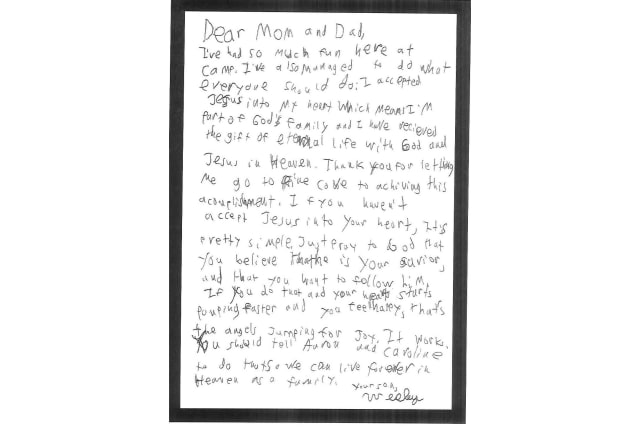 Dear Mom and Dad,
I've had so much fun here at
camp. I've also managed to do what
everyone should do: I accepted
Jesus into my heart which means I'm
part of God's family and I have recieved
the gift of eternal life with God and
Jesus in Heaven. Thank you for letting
me go to Pine Cove to achiving this
acomplishment. If you haven't
accept Jesus into your heart, It's
pretty simple. Just pray to God that
you believe that he is your savior,
and that you want to follow him.
If you do that and your heart starts
pouping faster and you feel happy, that's
the angels jumping for Joy. It works.
You should tell Aaron and Caroline
to do that so we can live forever in
Heaven as a family. your son,
Wesley